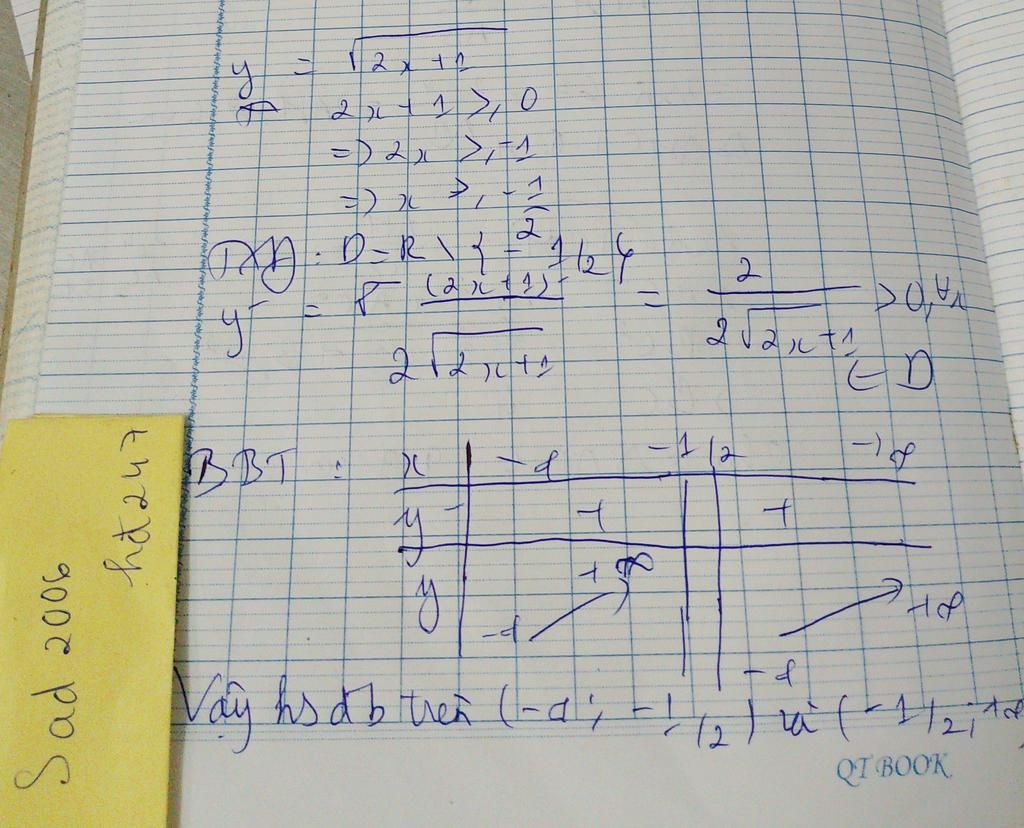 y = √2x+1
2x + 1 ≥ 0
=> 2x ≥ -1
=> x ≥ -1/2
TXĐ : D = R \ { -1/2 }
y' = (2x+1)' / 2√2x+1 = 2 / 2√2x+1 > 0, ∀x ∈ D
BBT : x | -∞ -1/2 +∞
y' + +
y -∞ +∞ -∞ +∞
Vậy hs đb trên (-∞; -1/2) và (-1/2; +∞
QT BOOK
Sad 2006
hđ247